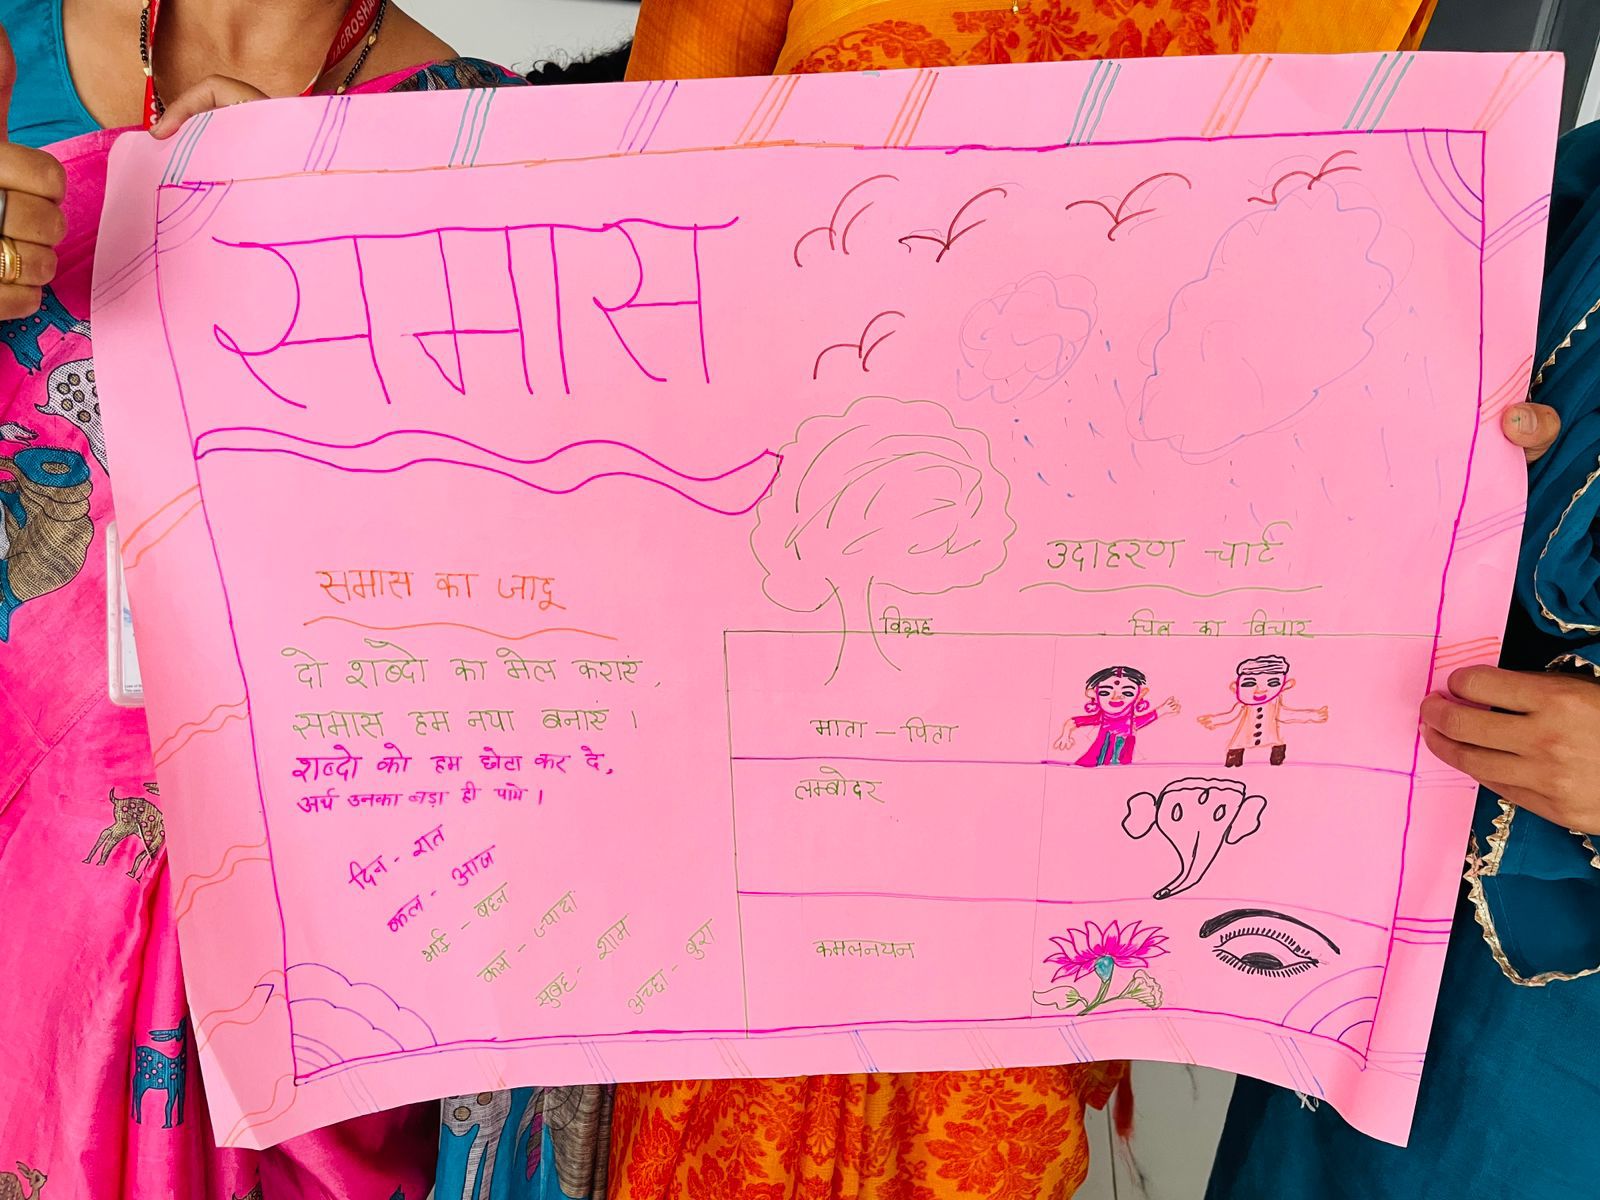 समास
समास का जादू
दो शब्दो का मेल कराएं,
समास हम नया बनाएं ।
शब्दो को हम छोटा कर दे,
अर्थ उनका बड़ा ही पाये ।
दिन - रात
कल - आज
भाई - बहन
कम - ज्यादा
सुबह - शाम
अच्छा - बुरा
उदाहरण चार्ट
विग्रह चित्र का विचार
माता - पिता
लम्बोदर
कमलनयन